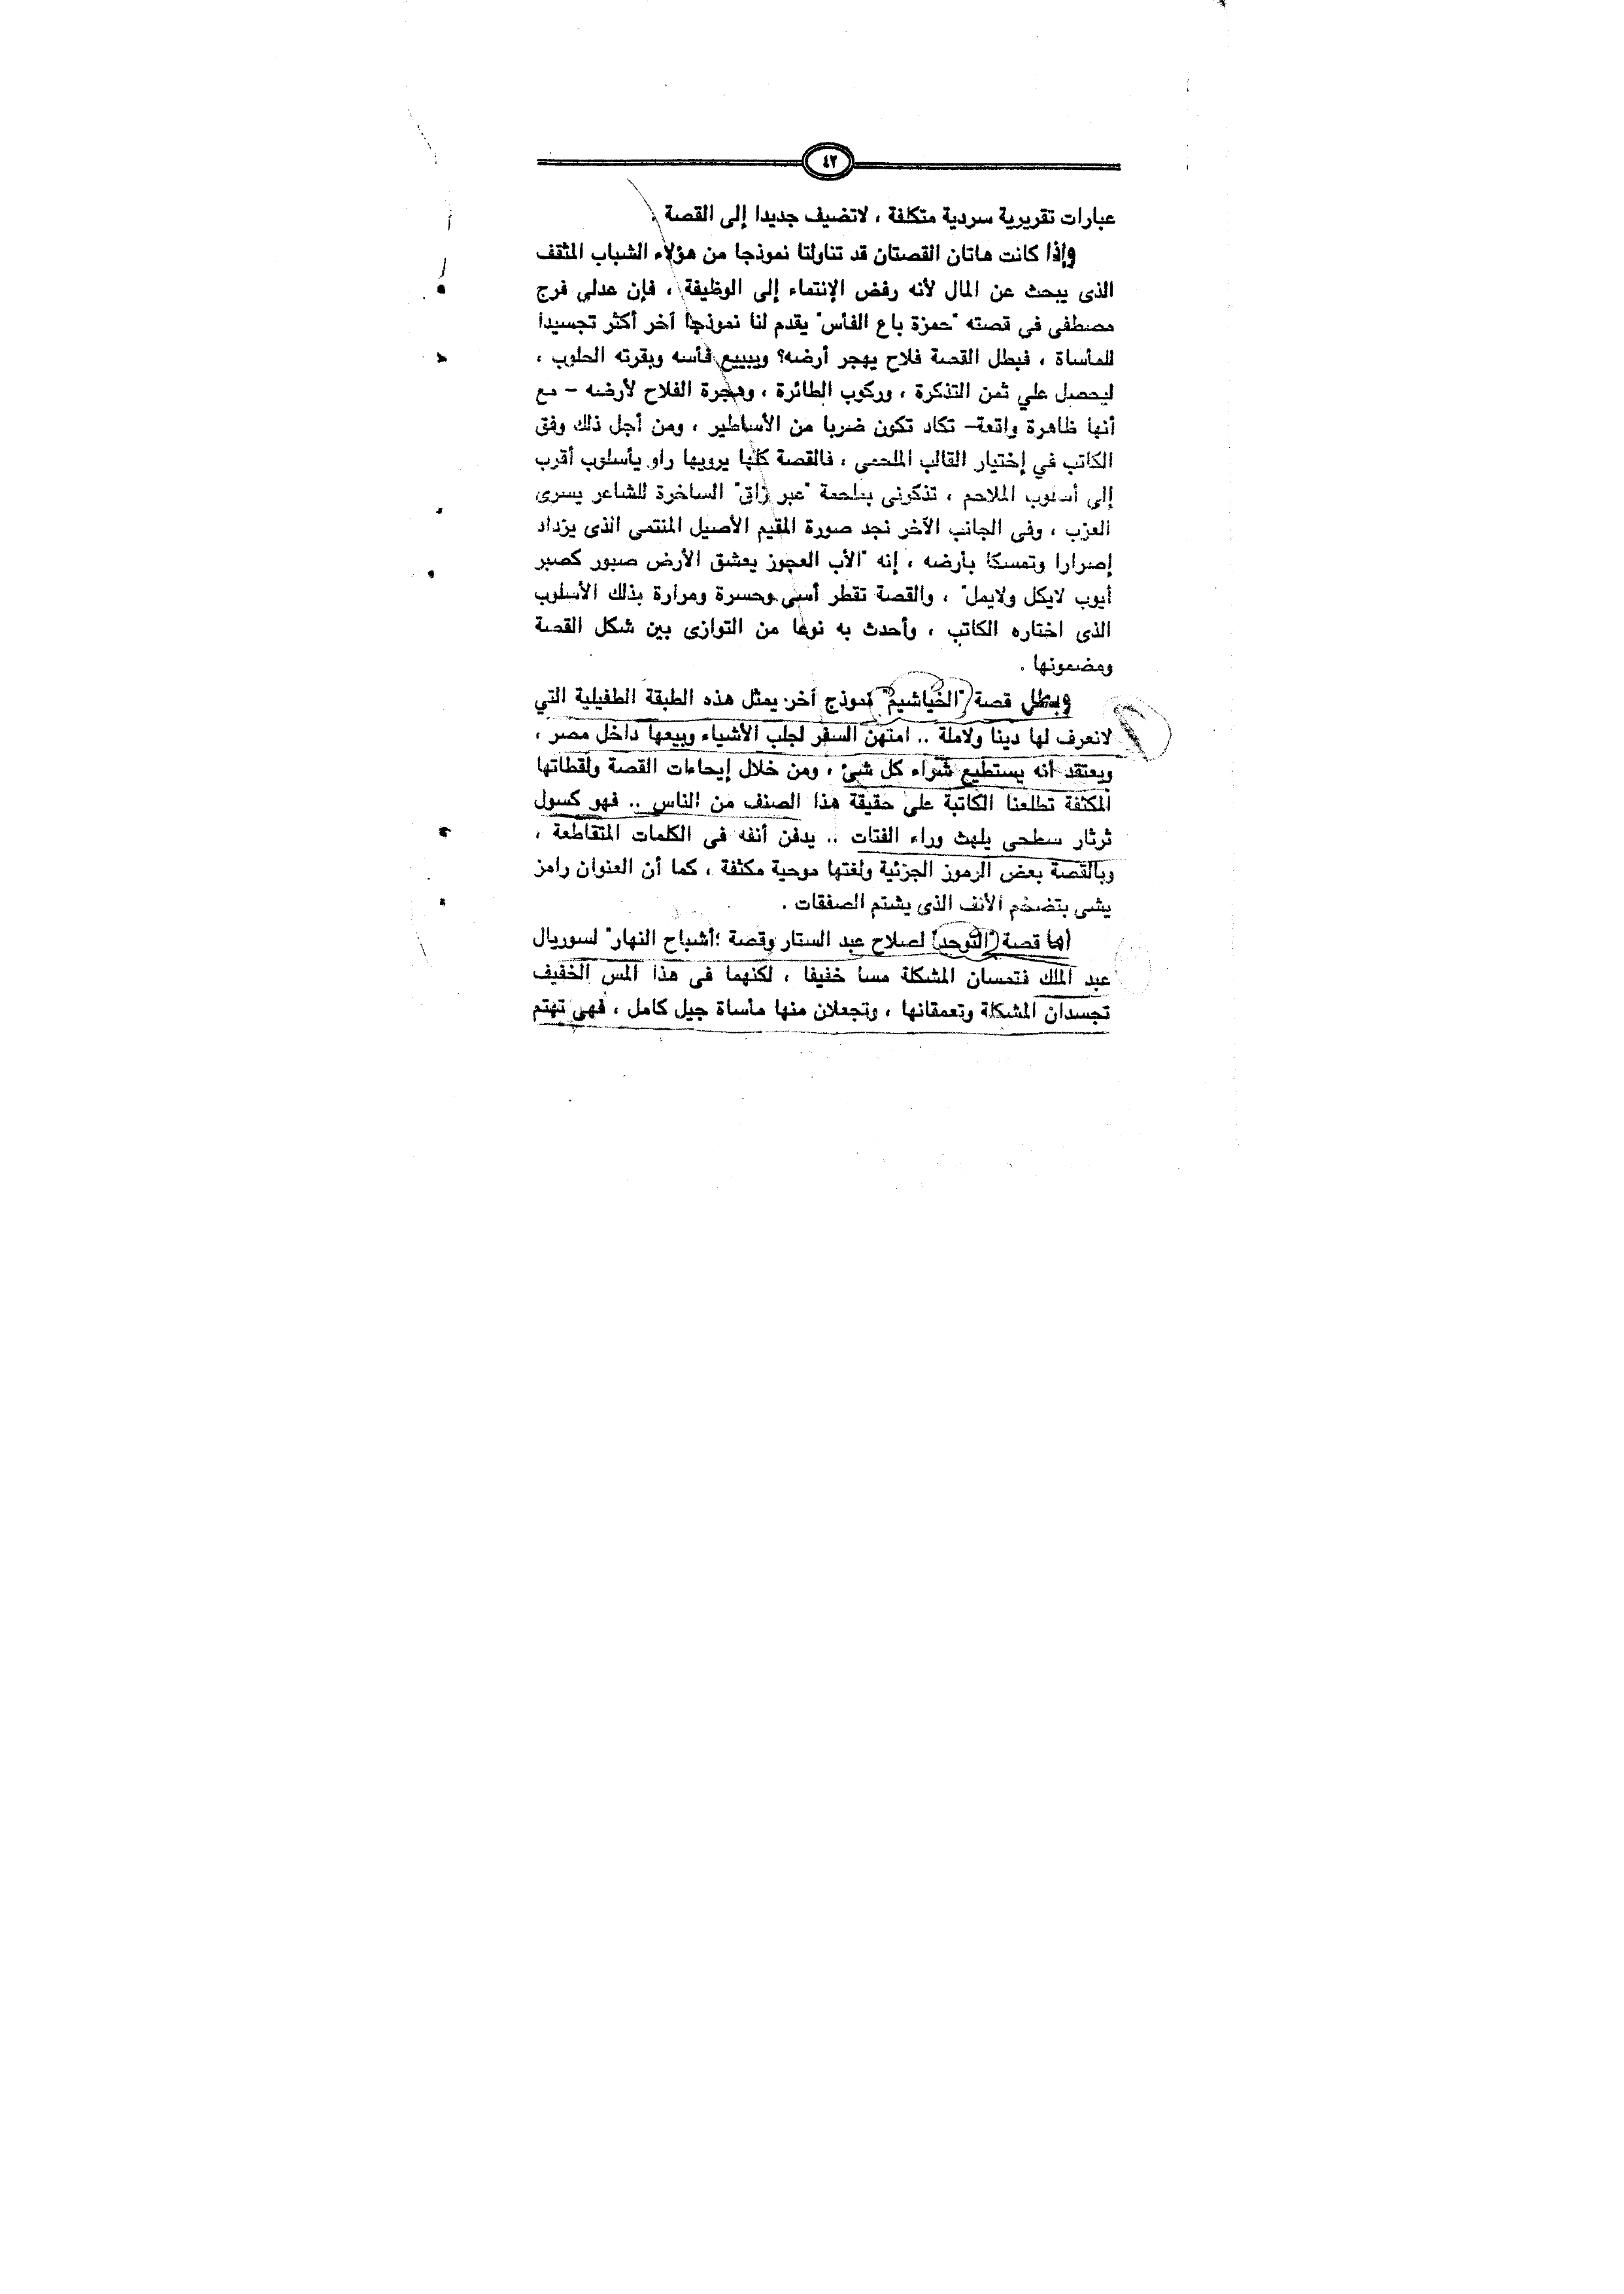 ٤٢
عبارات تقريرية سردية متكلفة ، لاتضيف جديدا إلى القصة .
وإذا كانت هاتان القصتان قد تناولتا نموذجا من هؤلاء الشباب المثقف
الذى يبحث عن المال لأنه رفض الإنتماء إلى الوظيفة ، فإن عدلى فرج
مصطفى في قصته "حمزة باع الفأس" يقدم لنا نموذجا آخر أكثر تجسيدا
للمأساة ، فبطل القصة فلاح يهجر أرضه؟ ويبيع فأسه وبقرته الحلوب ،
ليحصل علي ثمن التذكرة ، وركوب الطائرة ، وهجرة الفلاح لأرضه – مع
أنها ظاهرة واقعة– تكاد تكون ضربا من الأساطير ، ومن أجل ذلك وفق
الكاتب في إختيار القالب الملحمى ، فالقصة كلها يرويها راو يأسلوب أقرب
إلي أسلوب الملاحم ، تذكرنى بملحمة "عبر زاق" الساخرة للشاعر يسرى
العزب ، وفى الجانب الآخر نجد صورة المقيم الأصيل المنتمى الذى يزداد
إصرارا وتمسكا بأرضه ، إنه "الأب العجوز يعشق الأرض صبور كصبر
أيوب لايكل ولايمل" ، والقصة تقطر أسى وحسرة ومرارة بذلك الأسلوب
الذى اختاره الكاتب ، وأحدث به نوعا من التوازى بين شكل القصة
ومضمونها .
وبطل قصة "الخياشيم" نموذج آخر يمثل هذه الطبقة الطفيلية التي
لانعرف لها دينا ولاملة .. امتهن السفر لجلب الأشياء وبيعها داخل مصر ،
ويعتقد أنه يستطيع شراء كل شئ ، ومن خلال إيحاءات القصة ولقطاتها
المكثفة تطلعنا الكاتبة على حقيقة هذا الصنف من الناس .. فهو كسول
ثرثار سطحى يلهث وراء الفتات .. يدفن أنفه فى الكلمات المتقاطعة ،
وبالقصة بعض الرموز الجزئية ولغتها موحية مكثفة ، كما أن العنوان رامز
يشى بتضخم الأنف الذى يشتم الصفقات .
أما قصة "التوحد" لصلاح عبد الستار وقصة "أشباح النهار" لسوريال
عبد الملك فتمسان المشكلة مسا خفيفا ، لكنهما فى هذا المس الخفيف
تجسدان المشكلة وتعمقانها ، وتجعلان منها مأساة جيل كامل ، فهى تهتم